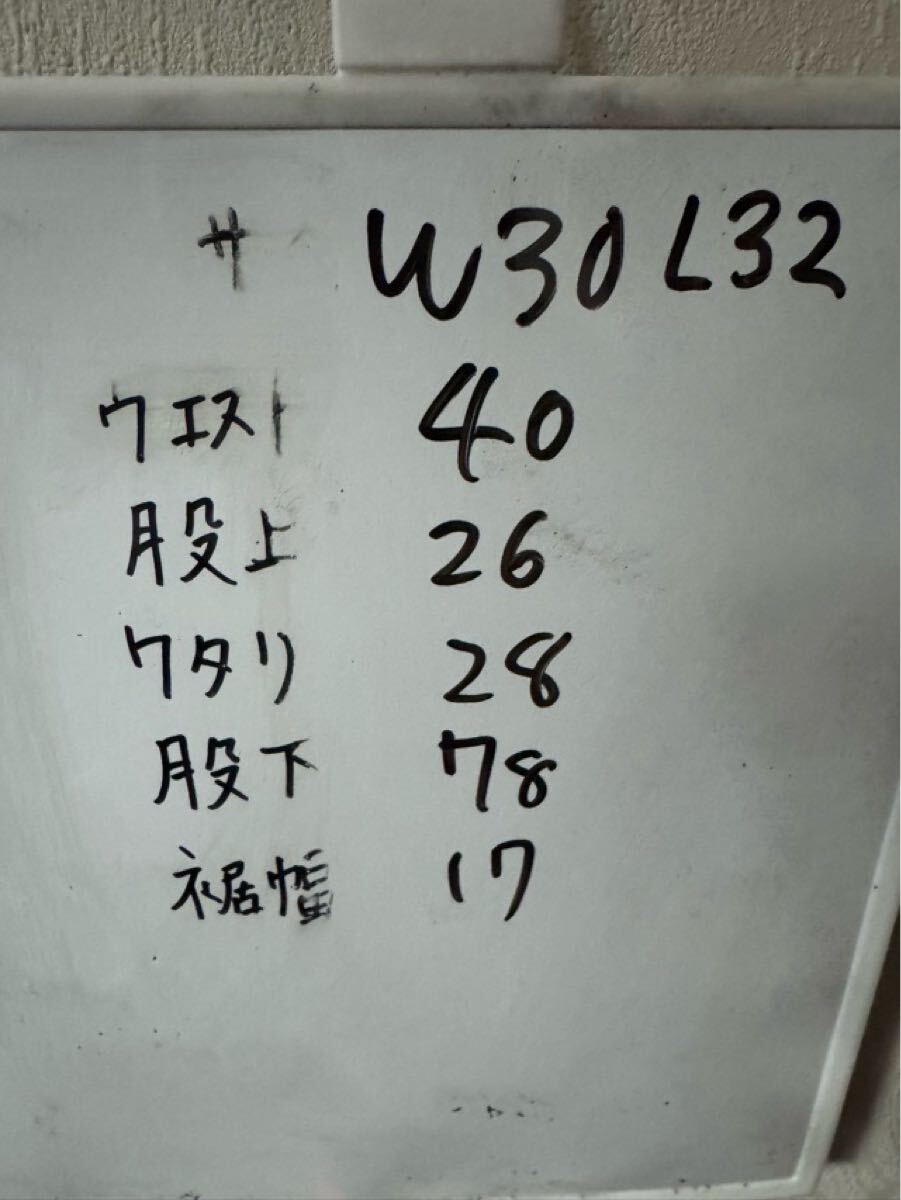 サ W30 L32
ウエスト 40
股上 26
ワタリ 28
股下 78
裾幅 17